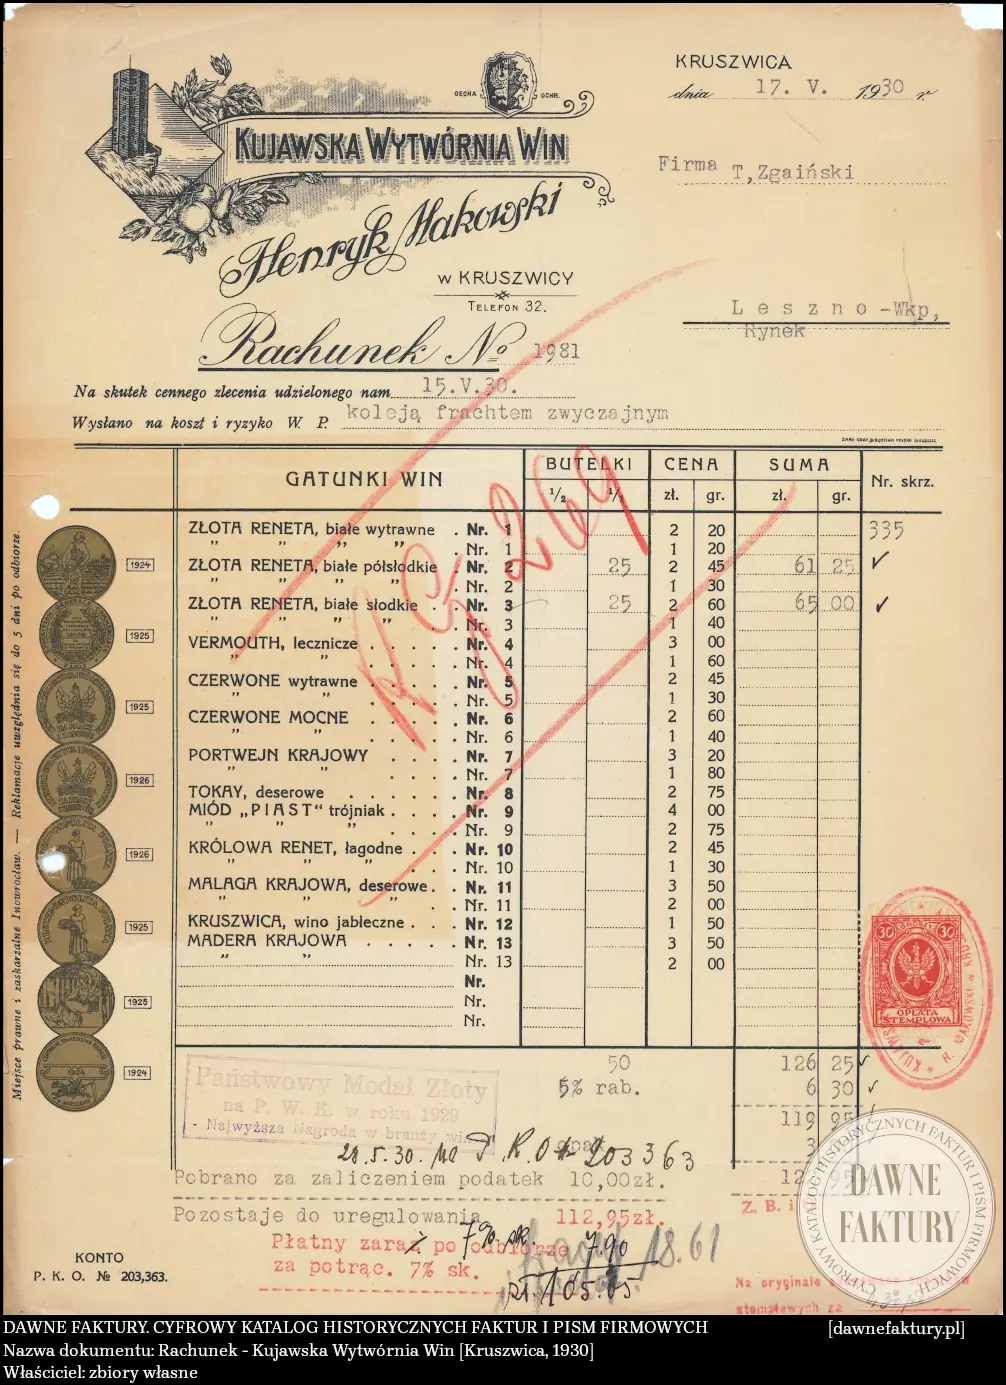 KRUSZWICA
dnia 17. V. 1930 r.
CECHA OCHR.
KUJAWSKA WYTWÓRNIA WIN
Firma T,Zgaiński
Henryk Makowski
w KRUSZWICY
TELEFON 32.
Leszno-Wkp,
Rynek
Rachunek No 1981
Na skutek cennego zlecenia udzielonego nam 15.V.30.
Wysłano na koszt i ryzyko W. P. koleją frachtem zwyczajnym
GATUNKI WIN BUTELKI CENA SUMA Nr. skrz.
1/2 1/1 zł. gr. zł. gr.
ZŁOTA RENETA, białe wytrawne . Nr. 1 2 20 335
„ „ „ „ . Nr. 1 1 20
ZŁOTA RENETA, białe półsłodkie . Nr. 2 25 2 45 61 25 ✓
„ „ „ „ . Nr. 2 1 30
ZŁOTA RENETA, białe słodkie . . Nr. 3 25 2 60 65 00 ✓
„ „ „ „ . Nr. 3 1 40
VERMOUTH, lecznicze . . . . . Nr. 4 3 00
„ „ . . . . . Nr. 4 1 60
CZERWONE wytrawne . . . . . Nr. 5 2 45
„ „ . . . . . Nr. 5 1 30
CZERWONE MOCNE . . . . . Nr. 6 2 60
„ „ . . . . . Nr. 6 1 40
PORTWEJN KRAJOWY . . . . Nr. 7 3 20
„ „ . . . . Nr. 7 1 80
TOKAY, deserowe . . . . . . Nr. 8 2 75
MIÓD „PIAST" trójniak . . . . Nr. 9 4 00
„ „ „ . . . . Nr. 9 2 75
KRÓLOWA RENET, łagodne . . . Nr. 10 2 45
„ „ „ . . . Nr. 10 1 30
MALAGA KRAJOWA, deserowe . . Nr. 11 3 50
„ „ „ . . Nr. 11 2 00
KRUSZWICA, wino jabłeczne . . . Nr. 12 1 50
MADERA KRAJOWA . . . . . Nr. 13 3 50
„ „ Nr. 13 2 00
Nr.
Nr.
Nr.
K/G 269
Miejsce prawne i zaskarżalne Inowrocław. — Reklamacje uwzględnia się do 5 dni po odbiorze.
1924
1925
1925
1926
1926
1925
1925
1924
30 30
OPŁATA
STEMPLOWA
50 126 25 ✓
5% rab. 6 30 ✓
119 95
Państwowy Medal Złoty
na P. W. K. w roku 1929
- Najwyższa Nagroda w branży
28.5.30. na P.K.O. 203363
Pobrano za zaliczeniem podatek 10,00zł.
Pozostaje do uregulowania 112,95zł.
Płatny zaraz po odbiorze
za potrąc. 7% sk.
7% sk. 790
18.61
zł. 105.05
Z. B. i
Na oryginale
stemplowych za
KONTO
P. K. O. № 203,363.
DAWNE
FAKTURY
CYFROWY KATALOG HISTORYCZNYCH FAKTUR I PISM FIRMOWYCH
DAWNE FAKTURY. CYFROWY KATALOG HISTORYCZNYCH FAKTUR I PISM FIRMOWYCH [dawnefaktury.pl]
Nazwa dokumentu: Rachunek - Kujawska Wytwórnia Win [Kruszwica, 1930]
Właściciel: zbiory własne